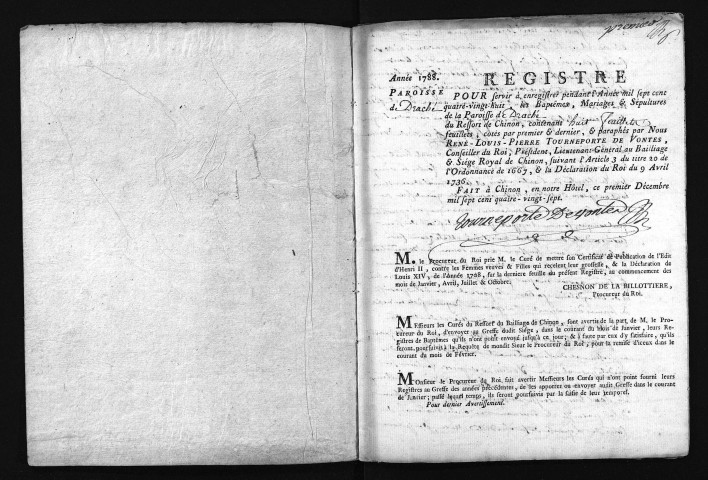 premier
Année 1788.
REGISTRE
PAROISSE
de Drachi
POUR servir à enregistrer pendant l'Année mil sept cent
quatre-vingt-huit, les Baptêmes, Mariages & Sépultures
de la Paroisse de Drachi
du Ressort de Chinon, contenant huit feuillets
feuillets, cotés par premier & dernier, & paraphés par Nous
RENÉ-LOUIS-PIERRE TOURNEPORTE DE VONTES,
Conseiller du Roi, Président, Lieutenant-Général au Bailliage
& Siége Royal de Chinon, suivant l'Article 3 du titre 20 de
l'Ordonnance de 1667, & la Déclaration du Roi du 9 Avril
1736.
FAIT à Chinon, en notre Hôtel, ce premier Décembre
mil sept cent quatre-vingt-sept.
Tourneporte De Vontes
M. le Procureur du Roi prie M. le Curé de mettre son Certificat de Publication de l'Edit
d'Henri II, contre les Femmes veuves & Filles qui recelent leur grossesse, & la Déclaration de
Louis XIV, de l'Année 1708, sur la derniere feuille du présent Registre, au commencement des
mois de Janvier, Avril, Juillet & Octobre.
CHESNON DE LA BILLOTTIERE,
Procureur du Roi.
MEssieurs les Curés du Ressort du Bailliage de Chinon, sont avertis de la part de M. le Pro-
cureur du Roi, d'envoyer au Greffe dudit Siége, dans le courant du Mois de Janvier, leurs Re-
gistres de Baptêmes qu'ils n'ont point envoyé jusqu'à ce jour; & à faute par eux d'y satisfaire, qu'ils
seront poursuivis à la Requête de mondit Sieur le Procureur du Roi, pour la remise d'iceux dans le
courant du mois de Février.
MOnsieur le Procureur du Roi, fait avertir Messieurs les Curés qui n'ont point fourni leurs
Registres au Greffe des années précédentes, de les apporter ou envoyer audit Greffe dans le courant
de Janvier; passé lequel temps, ils seront poursuivis par la saisie de leur temporel.
Pour dernier Avertissement.